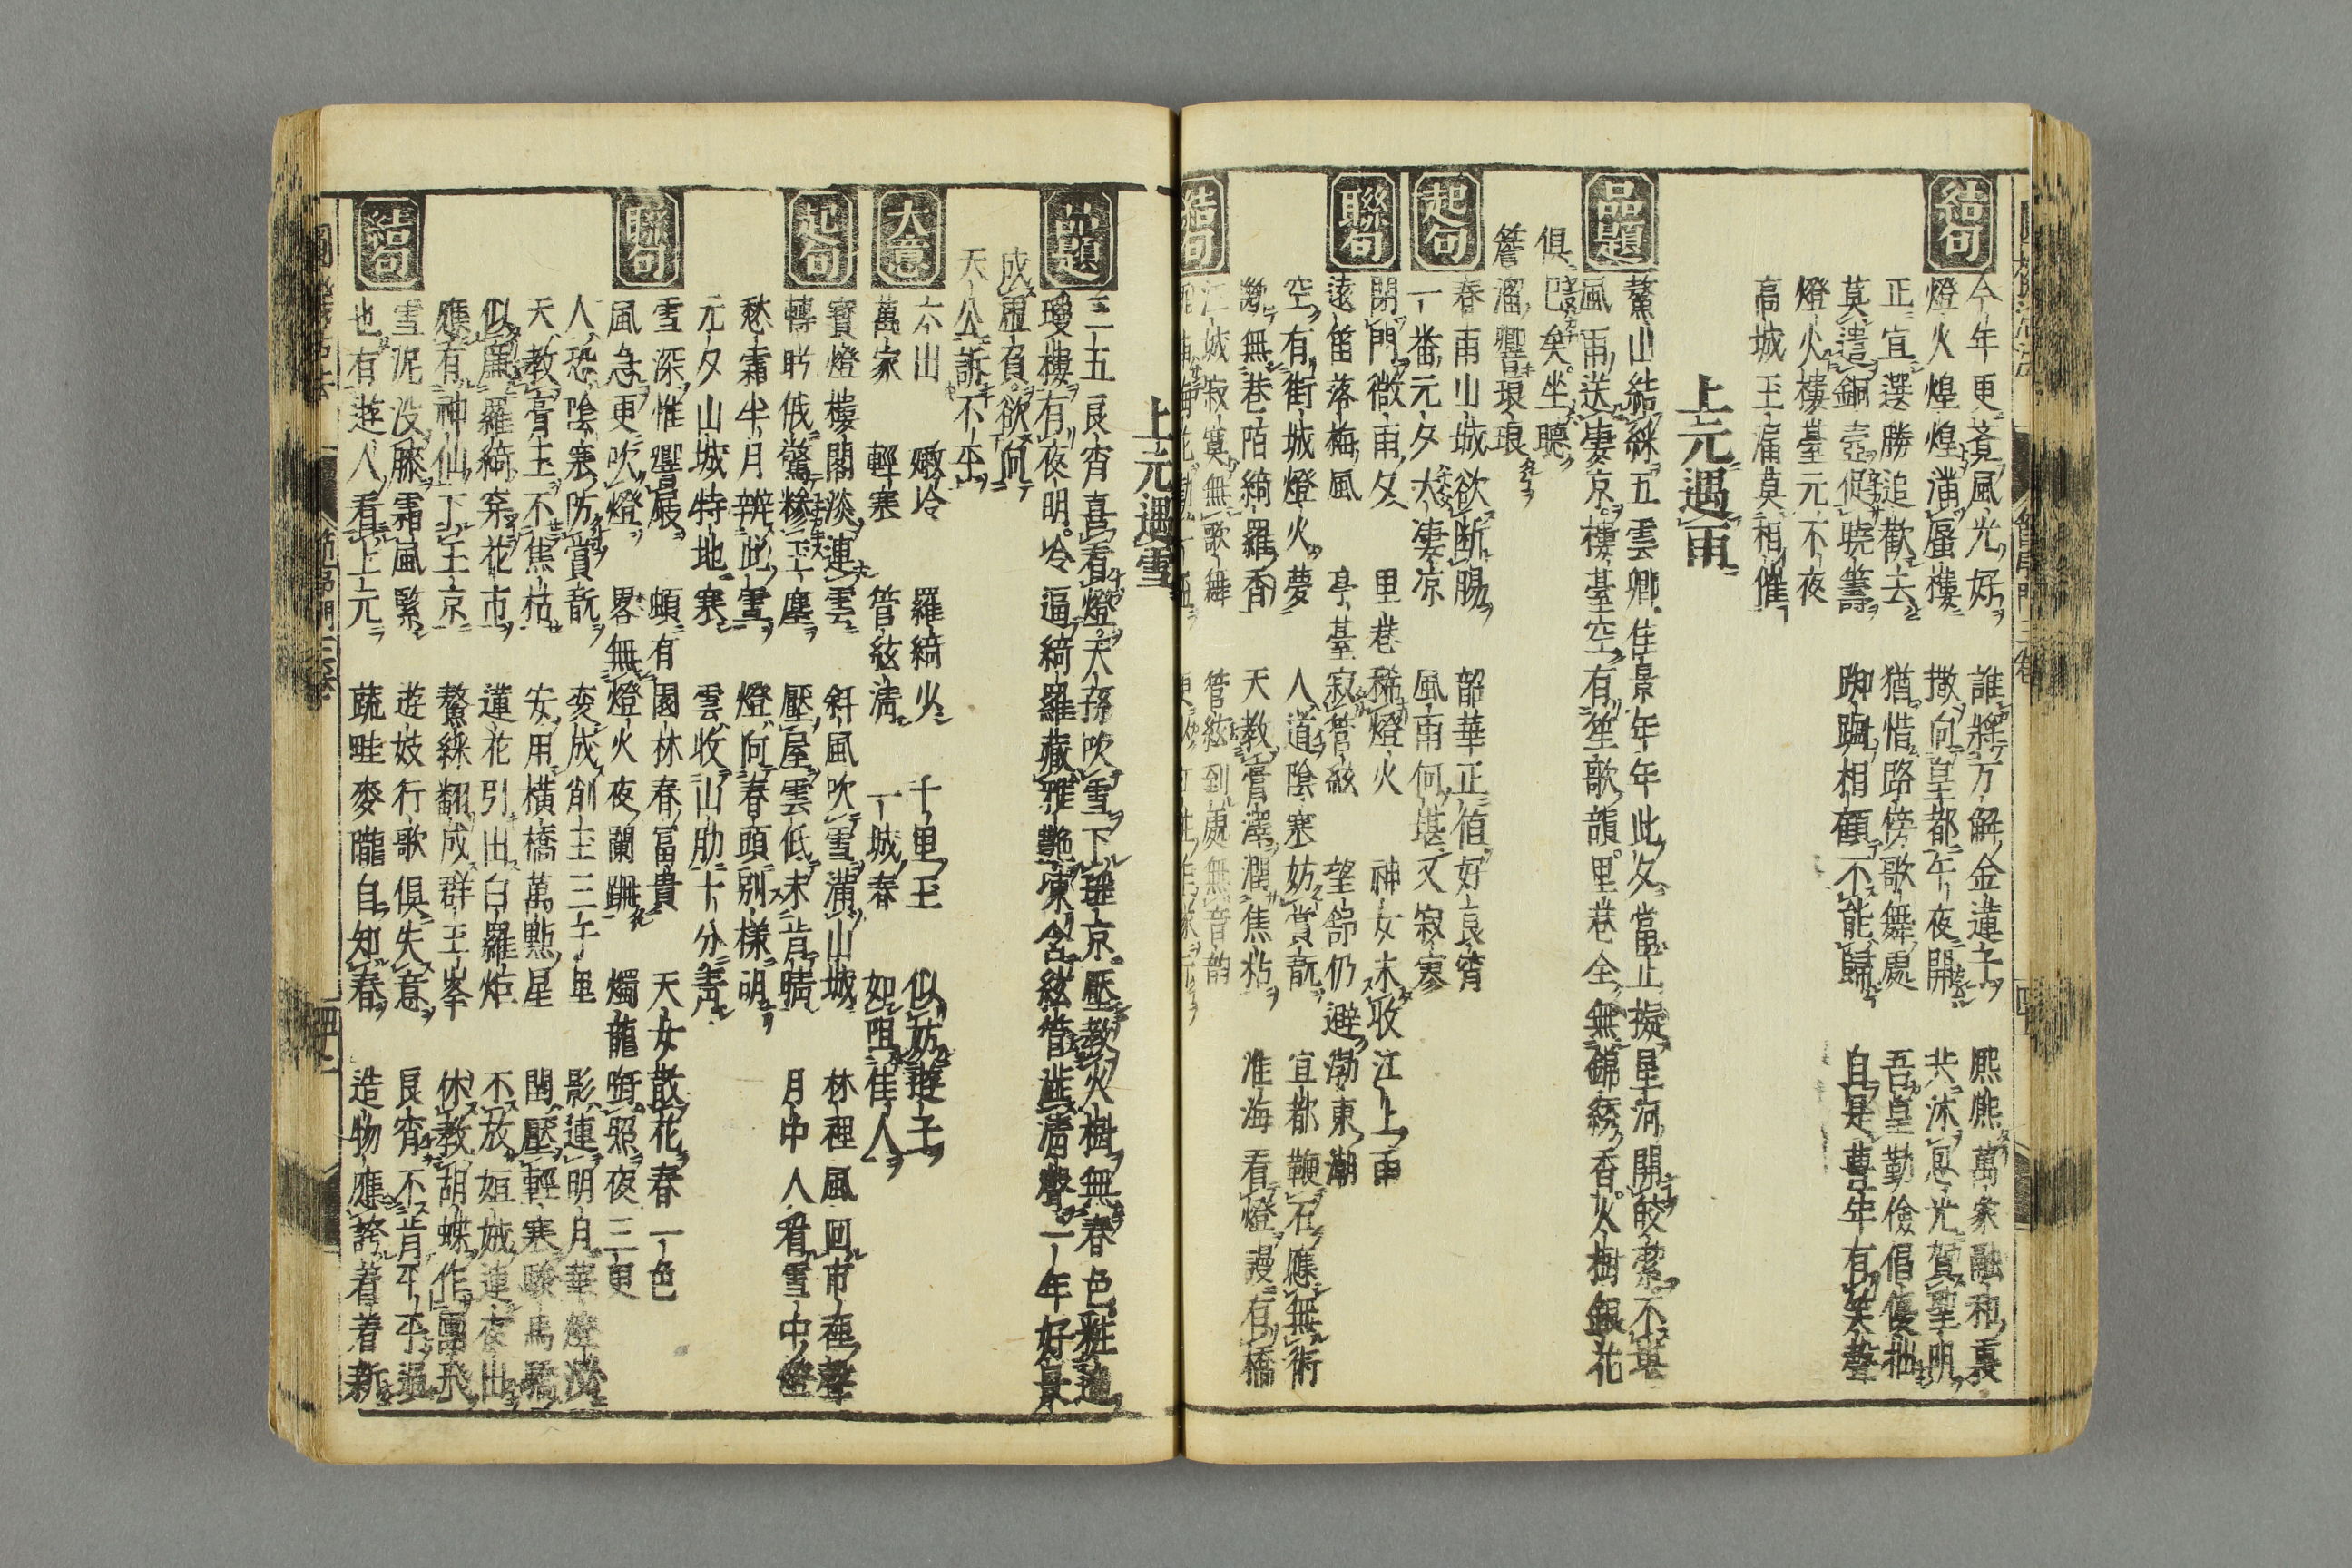 結句
今年更覺風光好 誰將万解金蓮子 熈熈萬家融和裏
燈火煌煌満蜃樓 撒向皇都午夜開 共沐恩光賀聖明
正宜選勝追歡去 猶惜路傍歌舞處 吾皇勤儉倡優拙
莫遣銅壺促曉籌 踟蹰相顧不能歸 自是豊年有笑聲
燈火樓臺元不夜
高城玉漏莫相催
上元遇雨
品題
鰲山結綵五雲郷佳景年年此夕當正擬星河開皎潔不
風雨送凄凉樓臺空有笙歌韻里巷全無錦綉香火樹銀花
俱已矣坐聽
簷溜響琅琅
起句
春雨山城欲断腸 韶華正値好良宵
一番元夕大凄凉 風雨何堪又寂寥
聯句
閉門微雨夕 里巷稀燈火 神女未收江上雨
遠笛落梅風 亭臺寂管絃 望舒仍避渤東潮
空有街城燈火夢 人道陰寒妨賞翫 宜都鞭石應無術
斷無巷陌綺羅香 天教膏澤潤焦枯 准海看燈謾有橋
結句
江城寂寞無歌舞 管絃到處無音韵
上元遇雪
品題
三五良宵喜看燈天孫吹雪下瑶京壓教火樹無春色粧追
瓊樓有夜明冷逼綺羅藏雅艶凍含絃管澁清聲一年好景
成虛負欲向
天公訴不平
大意
六山 嫩冷 羅綺火 千里玉 似妨遊子
萬家 輕寒 管絃清 一城春 如阻佳人
起句
寶燈樓閣淡連雲 斜風吹雪満山城 林裡風回市裡聲
轉眄俄驚糝玉塵 壓屋雲低未肯晴 月中人看雪中燈
愁霜半月辨此雪 燈向春頭別樣明
元夕山城特地寒 雲收山肋十分青
聯句
雪深惟響屐 頓有園林春富貴 天女散花春一色
風急更吹燈 畧無燈火夜闌珊 燭龍晦照夜三更
人恐陰寒防賞翫 変成削玉三千里 影連明月華燈
天教膏玉不焦枯 安用橫橋萬點星 閙壓輕寒駿馬驕
似簾羅綺穿花市 蓮花引出白羅炬 不放姮娥連夜出
應有神仙下玉京 鰲綵翻成群玉峯 休教胡蝶作團飛
結句
雪泥没膝霜風緊 遊妓行歌俱失意 良宵不肯平平過
也有遊人看上元 蔬畦麥隴自知春 造物應誇着着新